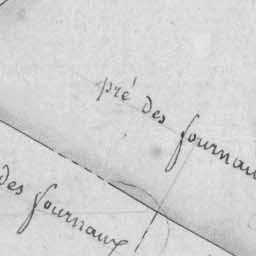 pré des fournau
des fournaux